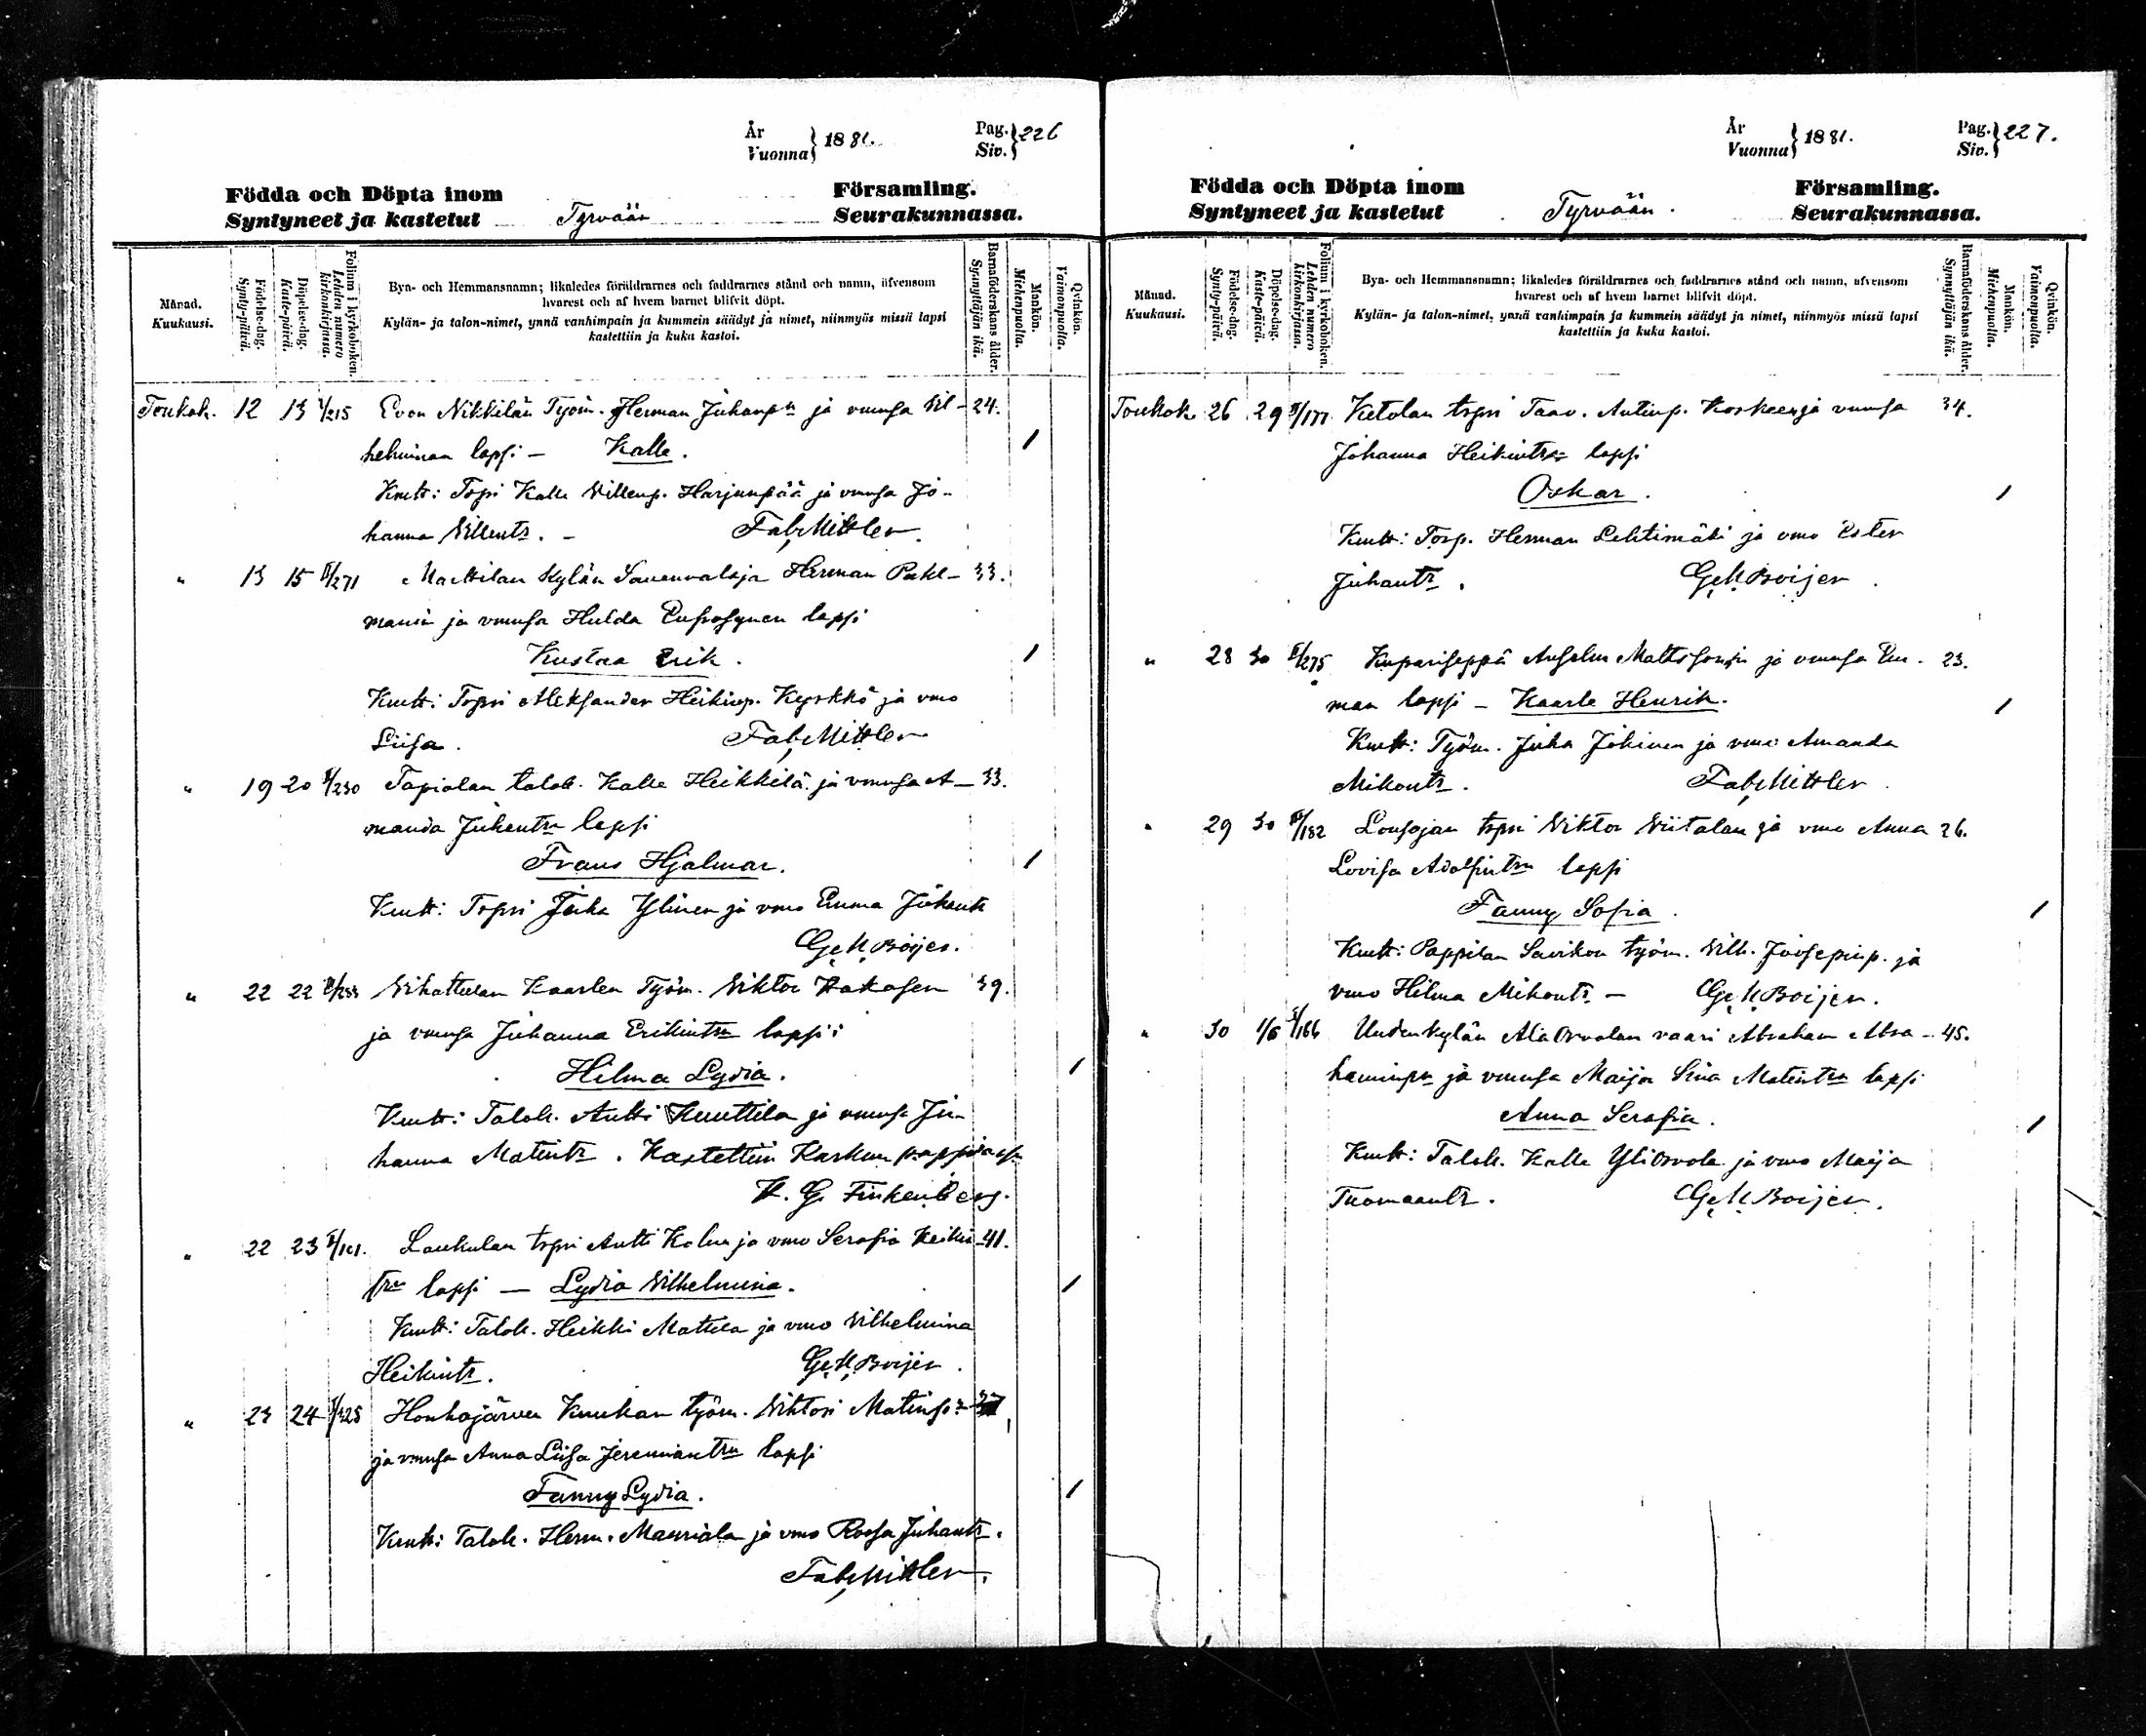 År
Vuonna } 1881.
Pag.
Siv. } 226
Födda och Döpta inom Församling.
Syntyneet ja kastetut Tyrvään Seurakunnassa.
Månad.
Kuukausi.
Födelse-dag.
Synty-päivä.
Döpelse-dag.
Kaste-päivä.
Folium i kyrkoboken.
Lehden numero
kirkonkirjassa.
Bya- och Hemmansnamn; likaledes föräldrarnes och faddrarnes stånd och namn, äfvensom
hvarest och af hvem barnet blifvit döpt.
Kylän- ja talon-nimet, ynnä vanhimpain ja kummein säädyt ja nimet, niinmyös missä lapsi
kastettiin ja kuka kastoi.
Barnaföderskans ålder.
Synnyttäjän ikä.
Mankön.
Miehenpuolta.
Qvinkön.
Vaimonpuolta.
Toukok. 12 13 1/215 Evon Nikkilän Työm. Herman Juhanpn ja vmnsa Vil- 24.
helminan lapsi – Kalle. 1
Kmtt: Tspi Kalle Villenp. Harjunpää ja vmnsa Jo-
hanna Villentr. – Fab. Mittler.
" 13 15 II/271 Marttilan Kylän Sauenvalaja Herman Pahl- 33.
manin ja vmnsa Hulda Eufrosynen lapsi
Kustaa Erik. 1
Kmtt: Tspi Aleksander Heikinp. Kyrkkö ja vmo
Liisa. Fab. Mittler
" 19 20 II/230 Tapiolan talok. Kalle Heikkilä ja vmnsa A- 33.
manda Juhantrn lapsi
Frans Hjalmar. 1
Kmtt: Tspi Juha Ylinen ja vmo Emma Juhantr
G. M. Boijer.
" 22 22 Vihattulan Kaarlen Työm. Viktor Hakasen 39.
ja vmnsa Juhanna Erikintrn lapsi:
Hilma Lydia. 1
Kmtt: Talok. Antti Knuttila ja vmnsa Ju-
hanna Matintr. Kastettiin Karkun pappilassa
K. G. Finkenberg.
" 22 23 I/101. Laukulan tspi Antti Kalun ja vmo Serafia Heikin- 41.
trn lapsi – Lydia Vilhelmina. 1
Kmtt: Talok. Heikki Mattila ja vmo Vilhelmina
Heikintr. G. M. Boijer.
" 23 24 I/325 Houhajärven Kuukan työm. Viktori Matinpn 37
ja vmnsa Anna Liisa Jeremiantrn lapsi
Fanny Lydia. 1
Kmtt: Talok. Herm. Mauriala ja vmo Roosa Juhantr.
Fab. Mittler.
År
Vuonna } 1881.
Pag.
Siv. } 227.
Födda och Döpta inom Församling.
Syntyneet ja kastetut Tyrvään. Seurakunnassa.
Månad.
Kuukausi.
Födelse-dag.
Synty-päivä.
Döpelse-dag.
Kaste-päivä.
Folium i kyrkoboken.
Lehden numero
kirkonkirjassa.
Bya- och Hemmansnamn; likaledes föräldrarnes och faddrarnes stånd och namn, äfvensom
hvarest och af hvem barnet blifvit döpt.
Kylän- ja talon-nimet, ynnä vanhimpain ja kummein säädyt ja nimet, niinmyös missä lapsi
kastettiin ja kuka kastoi.
Barnaföderskans ålder.
Synnyttäjän ikä.
Mankön.
Miehenpuolta.
Qvinkön.
Vaimonpuolta.
Toukok 26 29 II/177 Ketolan tspi Taav. Antinp. Koskeen ja vmnsa 34.
Johanna Heikintrn lapsi
Oskar. 1
Kmtt: Torp. Herman Lehtimäki ja vmo Ester
Juhantr. G. M. Boijer.
" 28 30 II/275 Kupariseppä Anselm Mattssonin ja vmnsa Em- 23.
man lapsi – Kaarle Henrik. 1
Kmtt: Työm. Juha Jokinen ja vmo Amanda
Mikontr. Fab. Mittler.
" 29 30 II/182 Lousojan tspi Viktor Viitalan ja vmo Anna 26.
Lovisa Adolfintrn lapsi
Fanny Sofia. 1
Kmtt: Pappilan Savikon työm. Vilh. Joosepinp. ja
vmo Hilma Mikontr. – G. M. Boijer.
" 30 1/6 I/166 Uudenkylän Ala Orvolan vaari Abraham Abra- 45.
haminpn ja vmnsa Maija Stina Matintrn lapsi
Anna Serafia. 1
Kmtt: Talok. Kalle Yliorvola ja vmo Maija
Tuomaantr. G. M. Boijer.